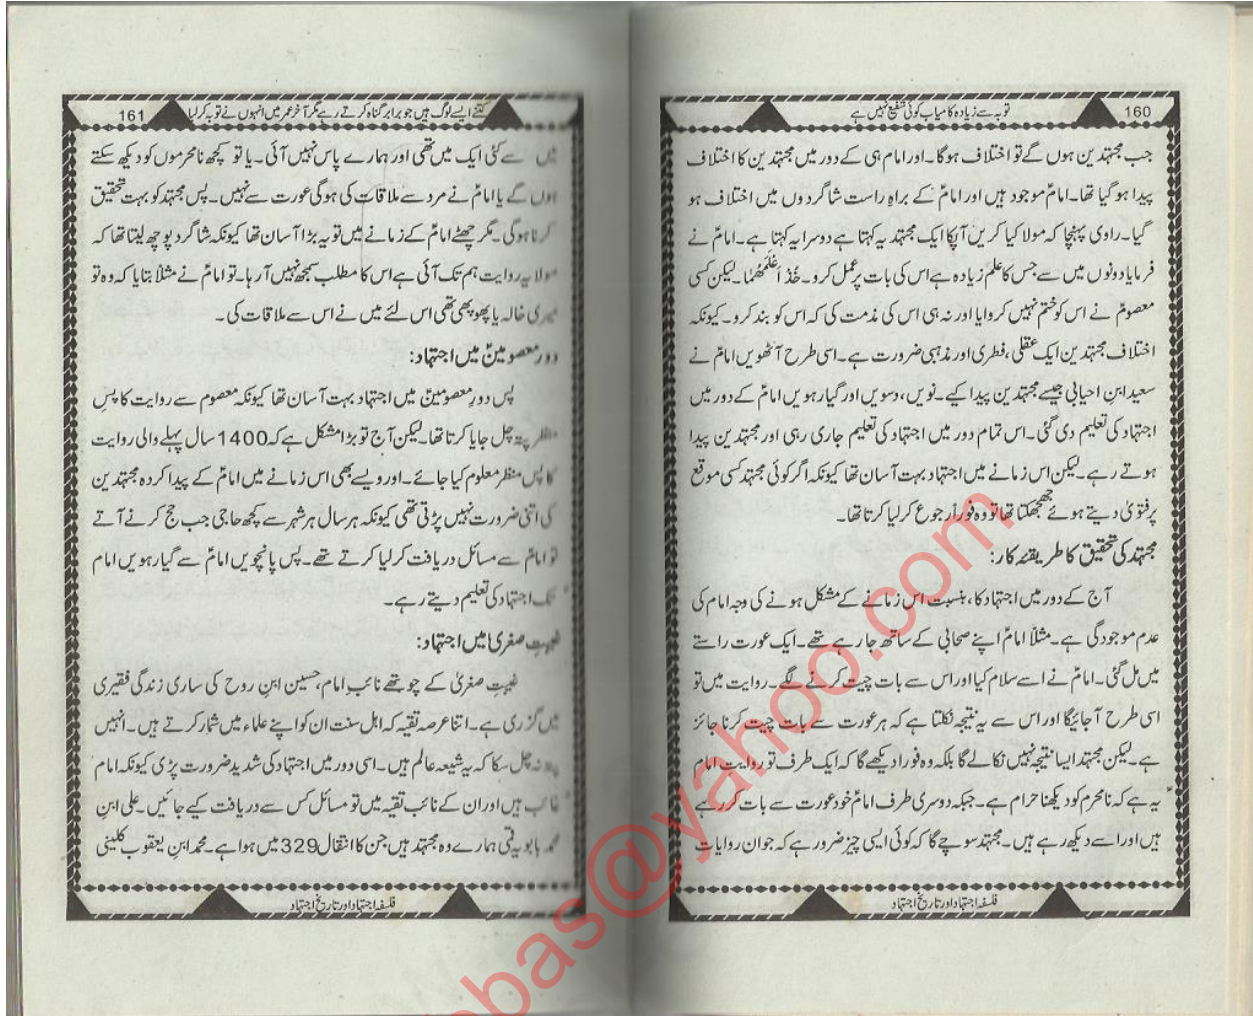 160 توبہ سے زیادہ کامیاب کوئی شفیع نہیں ہے
جب مجتہدین ہوں گے تو اختلاف ہوگا۔ اور امام ہی کے دور میں مجتہدین کا اختلاف
پیدا ہو گیا تھا۔ امامؑ موجود ہیں اور امامؑ کے براہِ راست شاگردوں میں اختلاف ہو
گیا۔ راوی پہنچا کہ مولا کیا کریں آپکا ایک مجتہد یہ کہتا ہے دوسرا یہ کہتا ہے۔ امامؑ نے
فرمایا دونوں میں سے جس کا علم زیادہ ہے اس کی بات پر عمل کرو۔ خُذ اَعْلَمُهُمَا۔ لیکن کسی
معصومؑ نے اس کو ختم نہیں کروایا اور نہ ہی اس کی مذمت کی کہ اس کو بند کرو۔ کیونکہ
اختلاف مجتہدین ایک عقلی، فطری اور مذہبی ضرورت ہے۔ اسی طرح آٹھویں امامؑ نے
سعید ابنِ احیابی جیسے مجتہدین پیدا کیے۔ نویں، دسویں اور گیارہویں امامؑ کے دور میں
اجتہاد کی تعلیم دی گئی۔ اس تمام دور میں اجتہاد کی تعلیم جاری رہی اور مجتہدین پیدا
ہوتے رہے۔ لیکن اس زمانے میں اجتہاد بہت آسان تھا کیونکہ اگر کوئی مجتہد کسی موقع
پر فتویٰ دیتے ہوئے جھجھکتا تھا تو وہ فوراً رجوع کر لیا کرتا تھا۔
مجتہد کی تحقیق کا طریقۂ کار:
آج کے دور میں اجتہاد کا، بنسبت اس زمانے کے مشکل ہونے کی وجہ امام کی
عدم موجودگی ہے۔ مثلاً امامؑ اپنے صحابی کے ساتھ جا رہے تھے۔ ایک عورت راستے
میں مل گئی۔ امامؑ نے اسے سلام کیا اور اس سے بات چیت کرنے لگے۔ روایت میں تو
اسی طرح آ جائیگا اور اس سے یہ نتیجہ نکلتا ہے کہ ہر عورت سے بات چیت کرنا جائز
ہے۔ لیکن مجتہد ایسا نتیجہ نہیں نکالے گا بلکہ وہ فوراً دیکھے گا کہ ایک طرف تو روایت امام
ؑ یہ ہے کہ نامحرم کو دیکھنا حرام ہے۔ جبکہ دوسری طرف امامؑ خود عورت سے بات کر رہے
ہیں اور اسے دیکھ رہے ہیں۔ مجتہد سوچے گا کہ کوئی ایسی چیز ضرور ہے کہ جو ان روایات
فلسفہ اجتہاد اور تاریخ اجتہاد
161 کتنے ایسے لوگ ہیں جو برابر گناہ کرتے رہے مگر آخر عمر میں انہوں نے توبہ کر لیا
میں سے کئی ایک میں تھی اور ہمارے پاس نہیں آئی۔ یا تو کچھ نامحرموں کو دیکھ سکتے
ہوں گے یا امامؑ نے مرد سے ملاقات کی ہوگی عورت سے نہیں۔ پس مجتہد کو بہت تحقیق
کرنا ہوگی۔ مگر چھٹے امامؑ کے زمانے میں تو یہ بڑا آسان تھا کیونکہ شاگرد پوچھ لیتا تھا کہ
مولا یہ روایت ہم تک آئی ہے اس کا مطلب سمجھ نہیں آرہا۔ تو امامؑ نے مثلاً بتایا کہ وہ تو
میری خالہ یا پھوپھی تھی اس لئے میں نے اس سے ملاقات کی۔
دورِ معصومینؑ میں اجتہاد:
پس دورِ معصومینؑ میں اجتہاد بہت آسان تھا کیونکہ معصوم سے روایت کا پسِ
منظر پتہ چل جایا کرتا تھا۔ لیکن آج تو بڑا مشکل ہے کہ 1400 سال پہلے والی روایت
کا پس منظر معلوم کیا جائے۔ اور ویسے بھی اس زمانے میں امامؑ کے پیدا کردہ مجتہدین
کی اتنی ضرورت نہیں پڑتی تھی کیونکہ ہر سال ہر شہر سے کچھ حاجی جب حج کرنے آتے
تو امامؑ سے مسائل دریافت کر لیا کرتے تھے۔ پس پانچویں امامؑ سے گیارہویں امام
ؑ تک اجتہاد کی تعلیم دیتے رہے۔
غیبتِ صغریٰ میں اجتہاد:
غیبتِ صغریٰ کے چوتھے نائبِ امام، حسین ابنِ روح کی ساری زندگی فقیری
میں گزری ہے۔ اتنا عرصہ تقیہ کہ اہل سنت ان کو اپنے علماء میں شمار کرتے ہیں۔ انہیں
پتہ نہ چل سکا کہ یہ شیعہ عالم ہیں۔ اسی دور میں اجتہاد کی شدید ضرورت پڑی کیونکہ امام
ؑ غائب ہیں اور ان کے نائب تقیہ میں تو مسائل کس سے دریافت کیے جائیں۔ علی ابنِ
محمد بابویہ قمی ہمارے وہ مجتہد ہیں جن کا انتقال 329 میں ہوا ہے۔ محمد ابنِ یعقوب کلینی
فلسفہ اجتہاد اور تاریخ اجتہاد
abas@yahoo.com